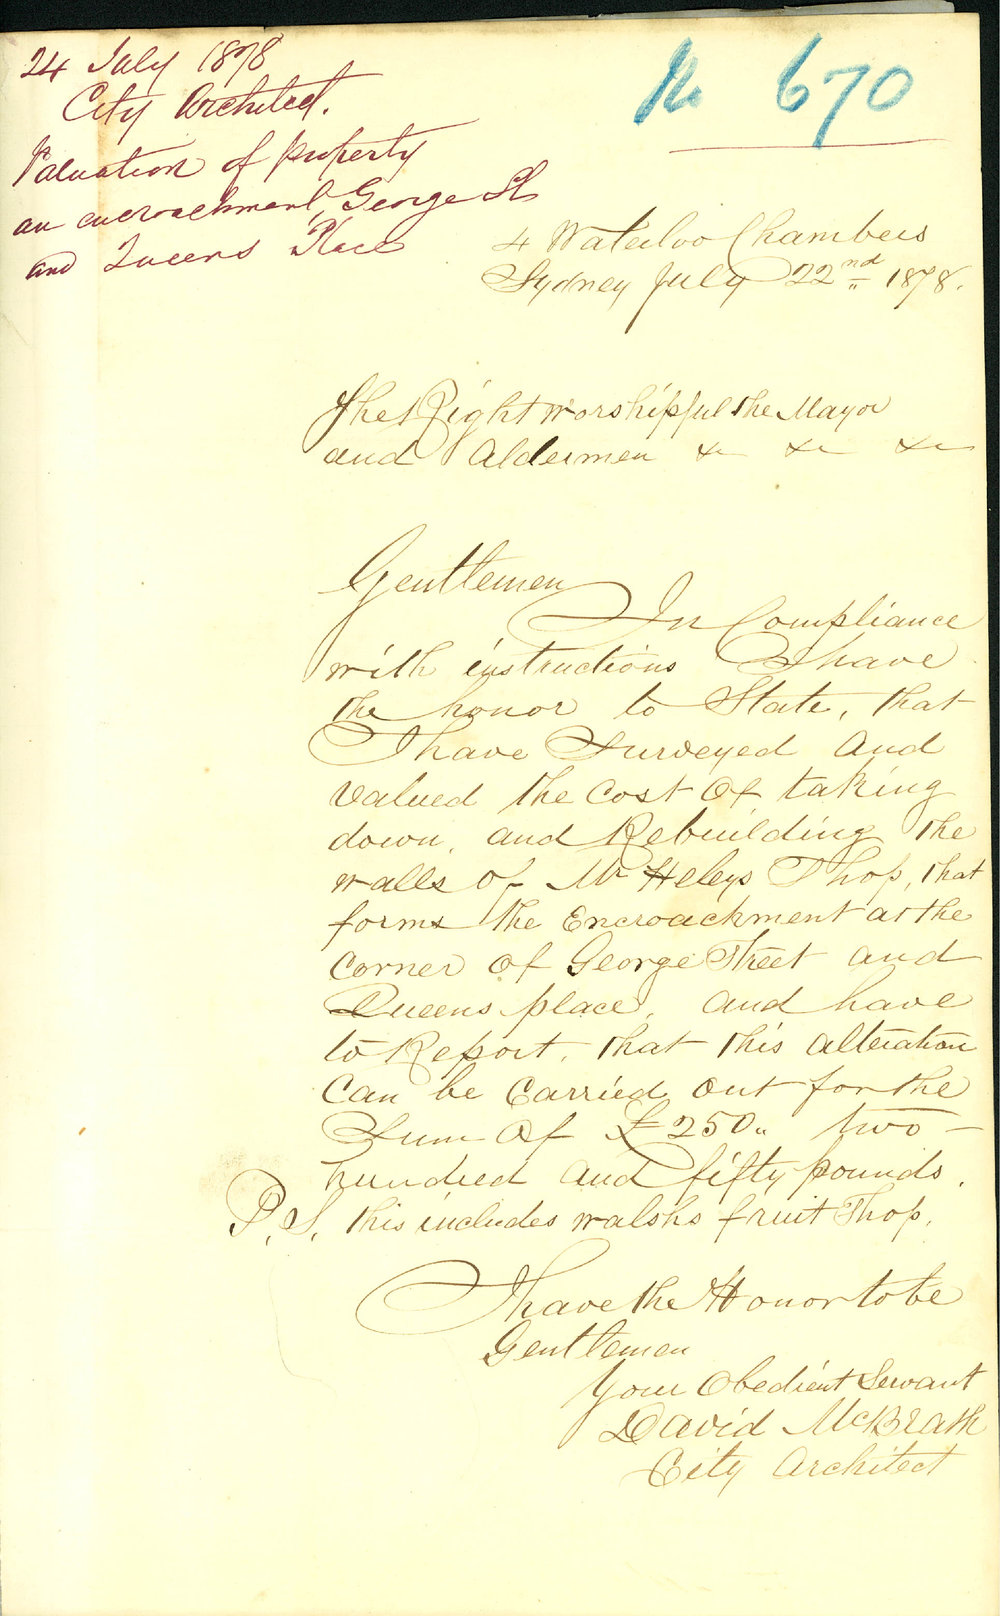 24 July 1878
City Architect.
Valuation of property
an encroachment, George St
and Queens Place
No 670
4 Waterloo Chambers
Sydney July 22nd 1878.
The Right Worshipful the Mayor
and Aldermen &c &c &c
Gentlemen
In Compliance
with instructions I have
the honor to State, that
I have Surveyed and
valued the Cost of taking
down, and Rebuilding the
walls of Mr Heleys Shop, that
forms the Encroachment at the
Corner of George Street and
Queens place, and have
to Report, that this alteration
Can be Carried out for the
Sum of £250,, two
hundred and fifty pounds.
P.S. this includes walshs fruit Shop.
I have the Honor to be
Gentlemen
Your Obedient Servant
David McBeath
City Architect